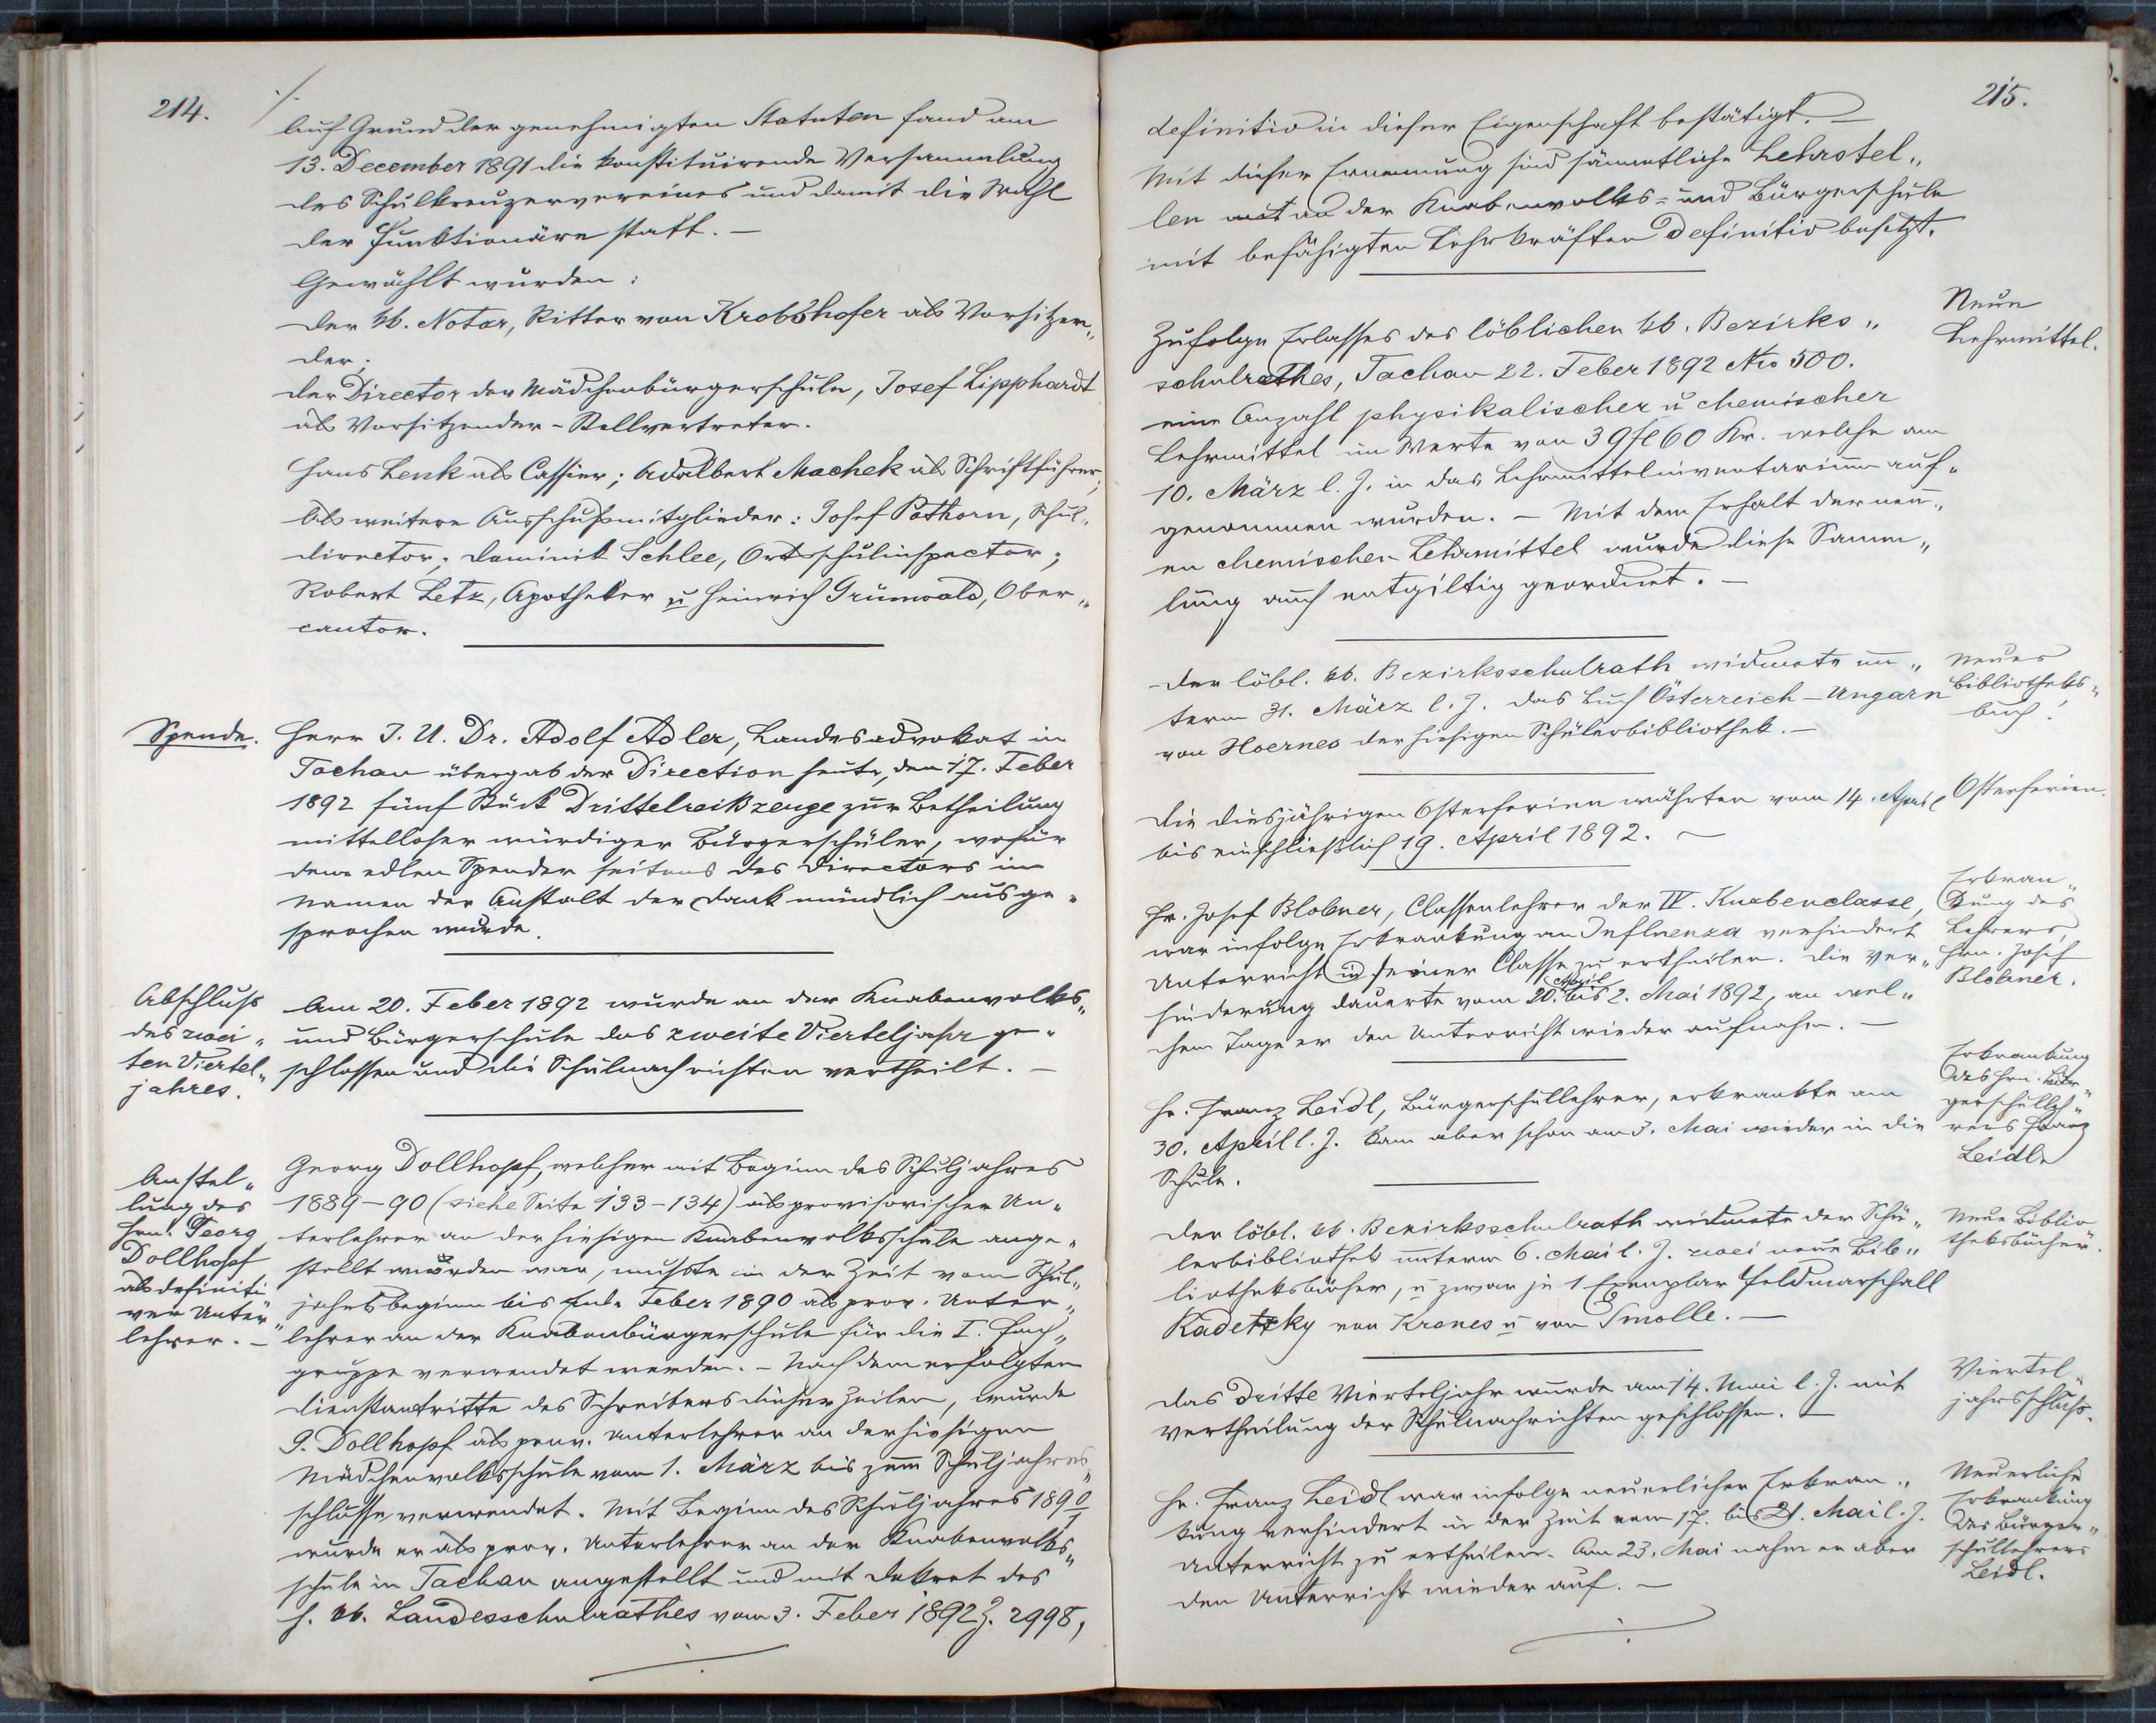 214.
./.
Auf Grund der genehmigten Statuten fand am
13. December 1891 die konstituirende Versammlung
des Schulkreuzervereines und damit die Wahl
der Funktionäre statt. –
Gewählt wurden:
der kk. Notar, Ritter von Krobshofer als Vorsitzen„
der;
der Director der Mädchenbürgerschule, Josef Lipphardt
als Vorsitzender-Stellvertreter.
Hans Lenk als Cassier; Adalbert Machek als Schriftführer;
Als weitere Ausschußmitglieder: Josef Pothorn, Schul„
director; Dominik Schlee, Ortsschulinspector;
Robert Letz, Apotheker u Heinrich Grünwald, Ober„
cantor.
Spende.
Herr J. U. Dr. Adolf Adler, Landesadvokat in
Tachau übergab der Direction heute, den 17. Feber
1892 fünf Stück Drittelreißzeuge zur Betheilung
mittelloser würdiger Bürgerschüler, wofür
dem edlen Spender seitens des Directors im
Namen der Anstalt der Dank mündlich ausge„
sprochen wurde.
Abschluss
des zwei„
ten Viertel„
jahres.
Am 20. Feber 1892 wurde an der Knabenvolks„
und Bürgerschule das zweite Vierteljahr ge„
schlossen und die Schulnachrichten vertheilt. –
Anstel„
lung des
Hrn. Georg
Dollhopf
als definiti
ver Unter„
lehrer. –
Georg Dollhopf, welcher mit Beginn des Schuljahres
1889–90 (siehe Seite 133–134) als provisorischer Un„
terlehrer an der hiesigen Knabenvolksschule ange„
stellt worden war, musste in der Zeit vom Schul„
jahrsbeginn bis Ende Feber 1890 als prov. Unter„
lehrer an der Knabenbürgerschule für die I. Fach„
gruppe verwendet werden. – Nach dem erfolgten
Dienstantritte des Schreibers dieser Zeilen, wurde
G. Dollhopf als prov. Unterlehrer an der hiesigen
Mädchenvolksschule vom 1. März bis zum Schuljahres„
schlusse verwendet. Mit Beginn des Schuljahres 1890/1
wurde er als prov. Unterlehrer an der Knabenvolks„
schule in Tachau angestellt und mit Dekret des
h. kk. Landesschulrathes vom 3. Feber 1892 Z. 2998,
./.
215.
definitiv in dieser Eigenschaft bestätigt. –
Mit dieser Ernennung sind sämmtliche Lehrstel„
len an der Knabenvolks- und Bürgerschule
mit befähigten Lehrkräften definitiv besetzt.
Neue
Lehrmittel.
Zufolge Erlasses des löblichen kk. Bezirks„
schulrathes, Tachau 22. Feber 1892 Nro 500.
eine Anzahl physikalischer u chemischer
Lehrmittel im Werte von 39 fl 60 Kr. welche am
10. März l. J. in das Lehrmittelinventarium auf„
genommen wurden. – Mit dem Erhalt der neu„
en chemischen Lehrmittel wurde diese Samm„
lung auch entgiltig geordnet. –
Neues
Bibliotheks„
buch.
Der löbl. kk. Bezirksschulrath widmete un„
term 31. März l. J. das Buch Österreich-Ungarn
von Hoernes der hiesigen Schülerbibliothek. –
Osterferien.
Die diesjährigen Osterferien währten vom 14. April
bis einschließlich 19. April 1892. –
Erkran„
kung des
Lehrers,
Hrn. Josef
Blobner.
Hr. Josef Blobner, Classenlehrer der IV. Knabenclasse,
war infolge Erkrankung an Influenza verhindert
Unterricht in seiner Classe zu ertheilen. Die Ver„
hinderung dauerte vom 20. April bis 2. Mai 1892, an wel„
chem Tage er den Unterricht wieder aufnahm. –
Erkrankung
des Hrn. Bür„
gerschulleh„
rers Franz
Leidl.
Hr. Franz Leidl, Bürgerschullehrer, erkrankte am
30. April l. J. kam aber schon am 3. Mai wieder in die
Schule.
Neue Biblio
theksbücher.
Der löbl. kk. Bezirksschulrath widmete der Schü„
lerbibliothek unterm 6. Mai l. J. zwei neue Bib„
liotheksbücher, u zwar je 1 Exemplar Feldmarschall
Radetzky von Krones u von Smolle. –
Viertel„
jahrsschluß.
Das dritte Vierteljahr wurde am 14. Mai l. J. mit
Vertheilung der Schulnachrichten geschlossen. –
Neuerliche
Erkrankung
des Bürger„
schullehrers
Leidl.
Hr. Franz Leidl war infolge neuerlicher Erkran„
kung verhindert in der Zeit vom 17. bis 21. Mai l. J.
Unterricht zu ertheilen. Am 23. Mai nahm er aber
den Unterricht wieder auf. –
./.